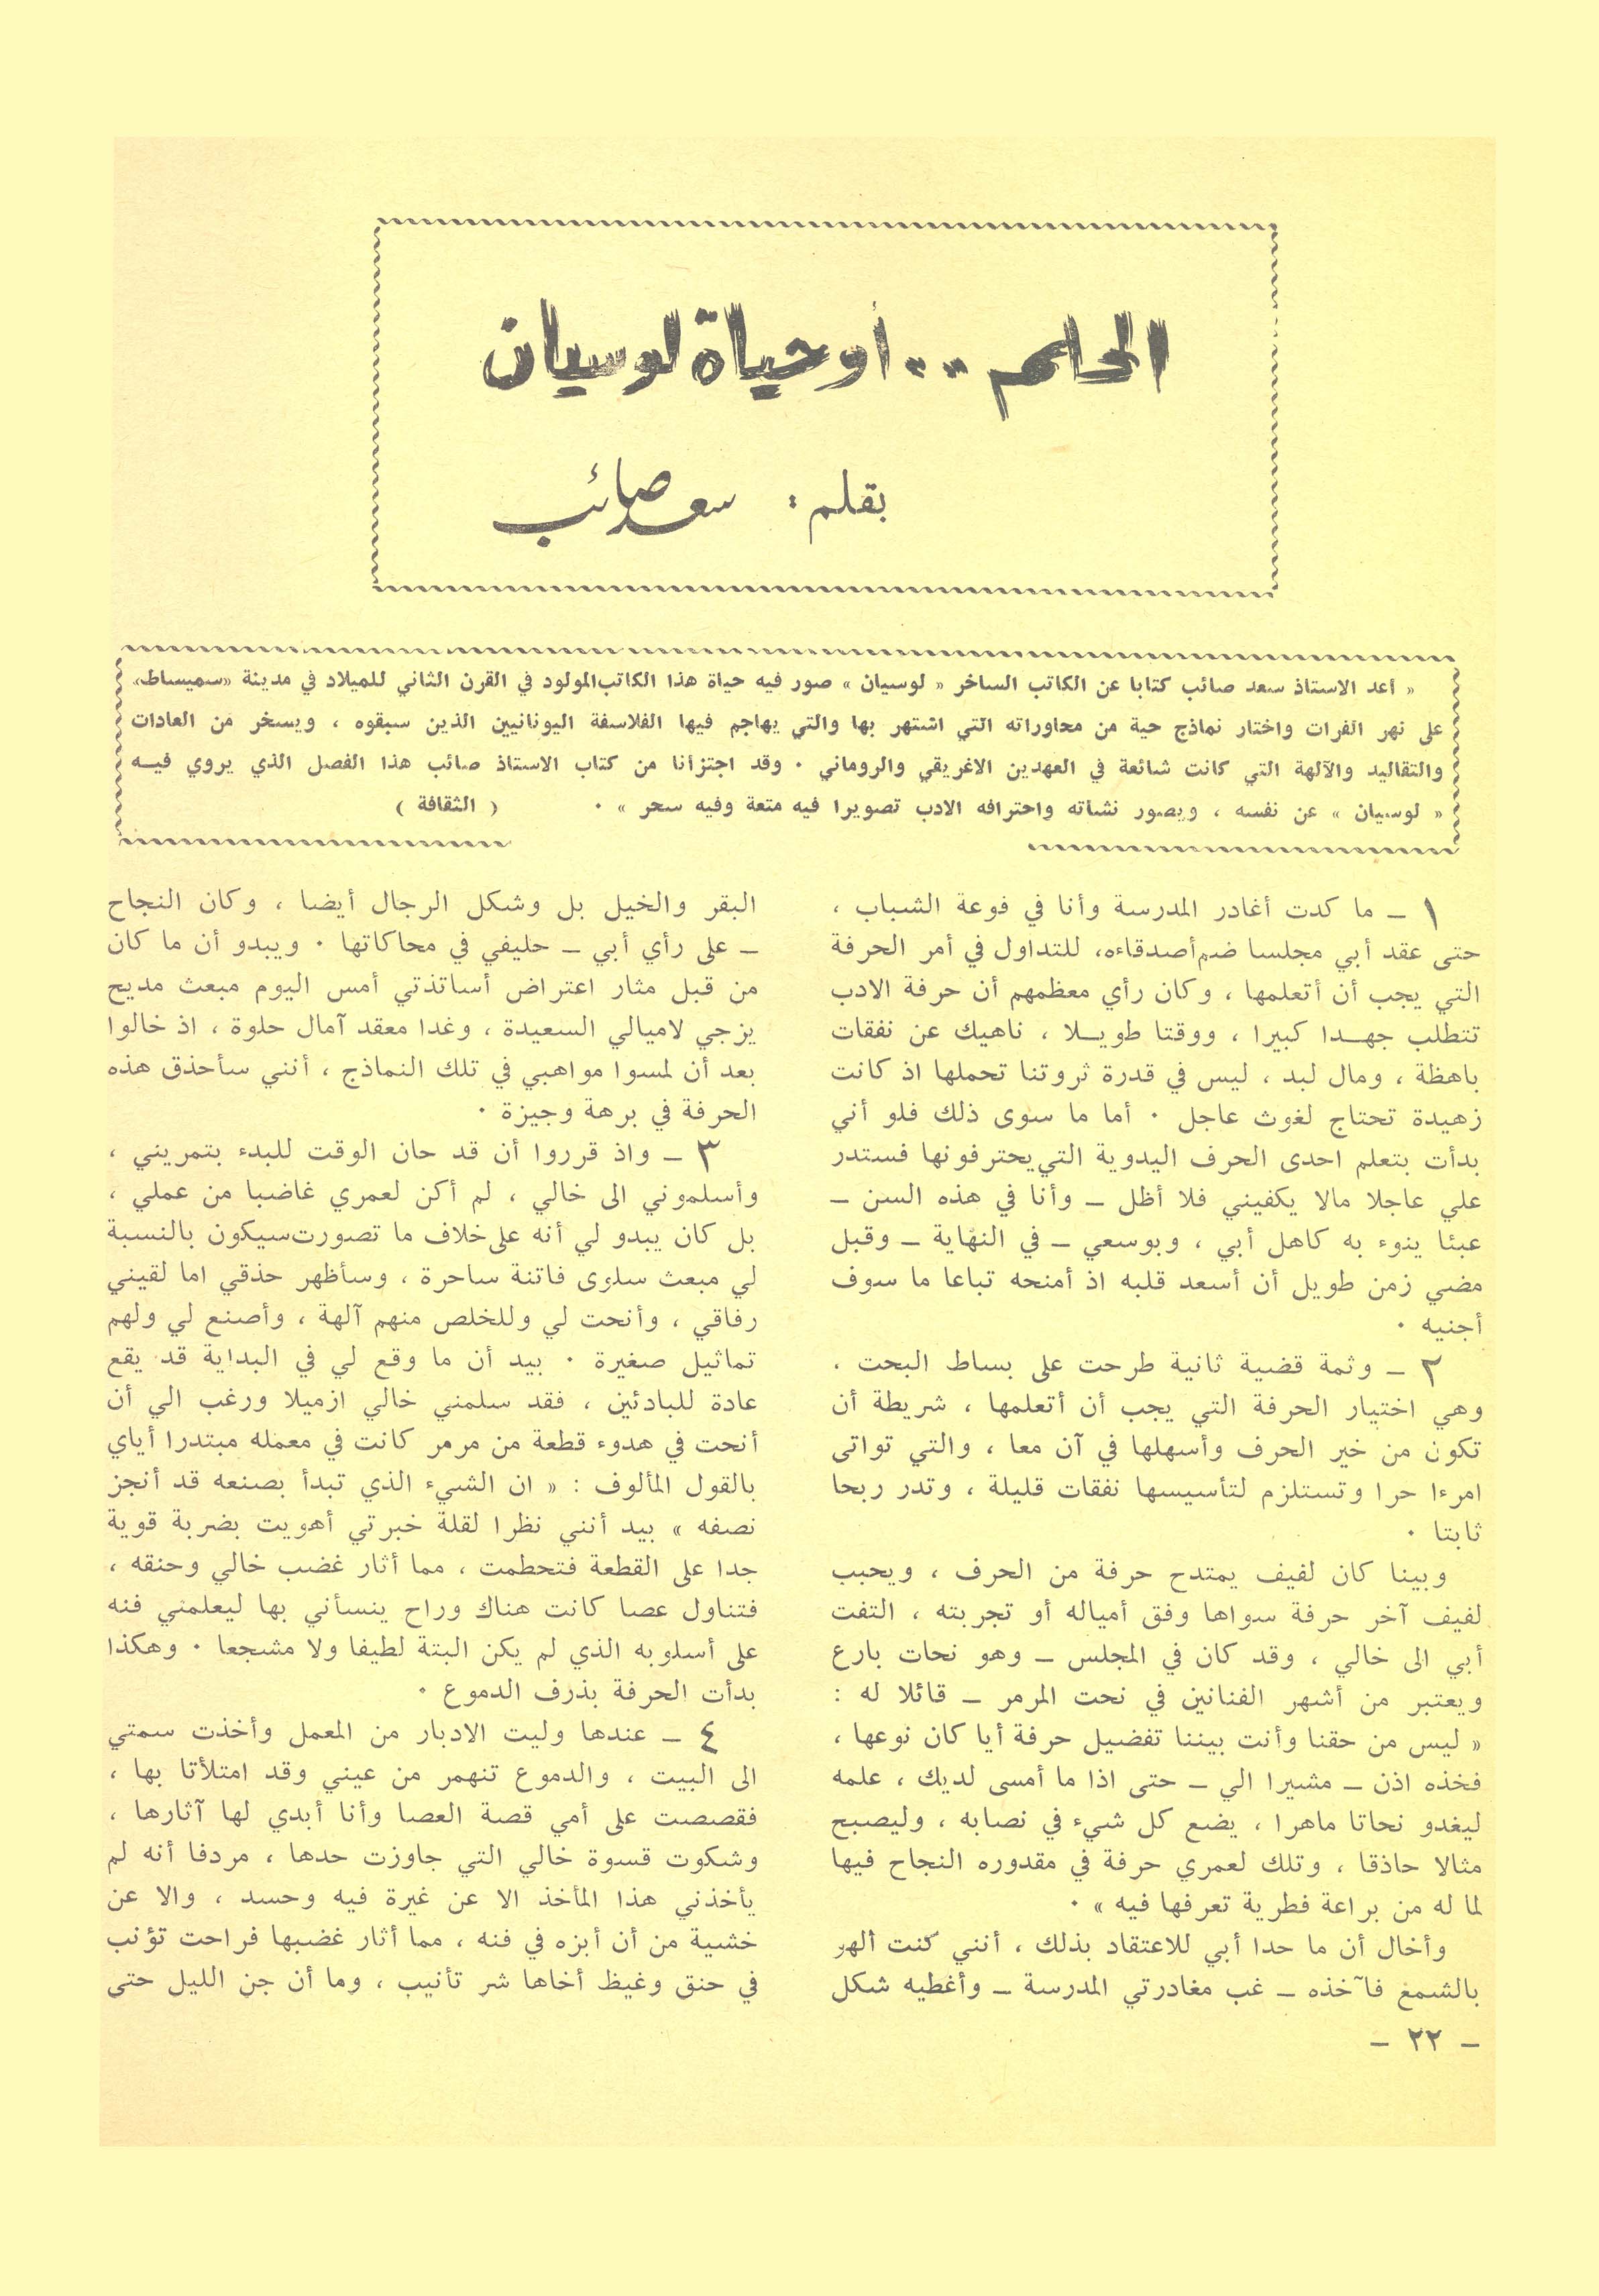 الحلم ٠٠ أو حياة لوسيان
بقلم : سعد صائب
« أعد الاستاذ سعد صائب كتابا عن الكاتب الساخر « لوسيان » صور فيه حياة هذا الكاتب المولود في القرن الثاني للميلاد في مدينة «سميساط»
على نهر الفرات واختار نماذج حية من محاوراته التي اشتهر بها والتي يهاجم فيها الفلاسفة اليونانيين الذين سبقوه ، ويسخر من العادات
والتقاليد والآلهة التي كانت شائعة في العهدين الاغريقي والروماني ٠ وقد اجتزأنا من كتاب الاستاذ صائب هذا الفصل الذي يروي فيــه
« لوسيان » عن نفسه ، ويصور نشأته واحترافه الادب تصويرا فيه متعة وفيه سحر » ٠ ( الثقافة )
١ – ما كدت أغادر المدرسة وأنا في فوعة الشباب ،
حتى عقد أبي مجلسا ضم أصدقاءه، للتداول في أمر الحرفة
التي يجب أن أتعلمها ، وكان رأي معظمهم أن حرفة الادب
تتطلب جهــدا كبيرا ، ووقتا طويــلا ، ناهيك عن نفقات
باهظة ، ومال لبد ، ليس في قدرة ثروتنا تحملها اذ كانت
زهيدة تحتاج لغوث عاجل ٠ أما ما سوى ذلك فلو أني
بدأت بتعلم احدى الحرف اليدوية التي يحترفونها فستدر
علي عاجلا مالا يكفيني فلا أظل – وأنا في هذه السن –
عبئا ينوء به كاهل أبي ، وبوسعي – في النهاية – وقبل
مضي زمن طويل أن أسعد قلبه اذ أمنحه تباعا ما سوف
أجنيه ٠
٢ – وثمة قضية ثانية طرحت على بساط البحث ،
وهي اختيار الحرفة التي يجب أن أتعلمها ، شريطة أن
تكون من خير الحرف وأسهلها في آن معا ، والتي تواتى
امرءا حرا وتستلزم لتأسيسها نفقات قليلة ، وتدر ربحا
ثابتا ٠
وبينا كان لفيف يمتدح حرفة من الحرف ، ويحبب
لفيف آخر حرفة سواها وفق أمياله أو تجربته ، التفت
أبي الى خالي ، وقد كان في المجلس – وهو نحات بارع
ويعتبر من أشهر الفنانين في نحت المرمر – قائلا له :
« ليس من حقنا وأنت بيننا تفضيل حرفة أيا كان نوعها ،
فخذه اذن – مشيرا الي – حتى اذا ما أمسى لديك ، علمه
ليغدو نحاتا ماهرا ، يضع كل شيء في نصابه ، وليصبح
مثالا حاذقا ، وتلك لعمري حرفة في مقدوره النجاح فيها
لما له من براعة فطرية تعرفها فيه » ٠
وأخال أن ما حدا أبي للاعتقاد بذلك ، أنني كنت ألهو
بالشمع فآخذه – غب مغادرتي المدرسة – وأعطيه شكل
البقر والخيل بل وشكل الرجال أيضا ، وكان النجاح
– على رأي أبي – حليفي في محاكاتها ٠ ويبدو أن ما كان
من قبل مثار اعتراض أساتذتي أمس اليوم مبعث مديح
يزجي لاميالي السعيدة ، وغدا معقد آمال حلوة ، اذ خالوا
بعد أن لمسوا مواهبي في تلك النماذج ، أنني سأحذق هذه
الحرفة في برهة وجيزة ٠
٣ – واذ قرروا أن قد حان الوقت للبدء بتمريني ،
وأسلموني الى خالي ، لم أكن لعمري غاضبا من عملي ،
بل كان يبدو لي أنه على خلاف ما تصورت سيكون بالنسبة
لي مبعث سلوى فاتنة ساحرة ، وسأظهر حذقي اما لقيني
رفاقي ، وأنحت لي وللخلص منهم آلهة ، وأصنع لي ولهم
تماثيل صغيرة ٠ بيد أن ما وقع لي في البداية قد يقع
عادة للبادئين ، فقد سلمني خالي ازميلا ورغب الي أن
أنحت في هدوء قطعة من مرمر كانت في معمله مبتدرا أياي
بالقول المألوف : « ان الشيء الذي تبدأ بصنعه قد أنجز
نصفه » بيد أنني نظرا لقلة خبرتي أهويت بضربة قوية
جدا على القطعة فتحطمت ، مما أثار غضب خالي وحنقه ،
فتناول عصا كانت هناك وراح ينسأني بها ليعلمني فنه
على أسلوبه الذي لم يكن البتة لطيفا ولا مشجعا ٠ وهكذا
بدأت الحرفة بذرف الدموع ٠
٤ – عندها وليت الادبار من المعمل وأخذت سمتي
الى البيت ، والدموع تنهمر من عيني وقد امتلأتا بها ،
فقصصت على أمي قصة العصا وأنا أبدي لها آثارها ،
وشكوت قسوة خالي التي جاوزت حدها ، مردفا أنه لم
يأخذني هذا المأخذ الا عن غيرة فيه وحسد ، والا عن
خشية من أن أبزه في فنه ، مما أثار غضبها فراحت تؤنب
في حنق وغيظ أخاها شر تأنيب ، وما أن جن الليل حتى
– ٢٢ –